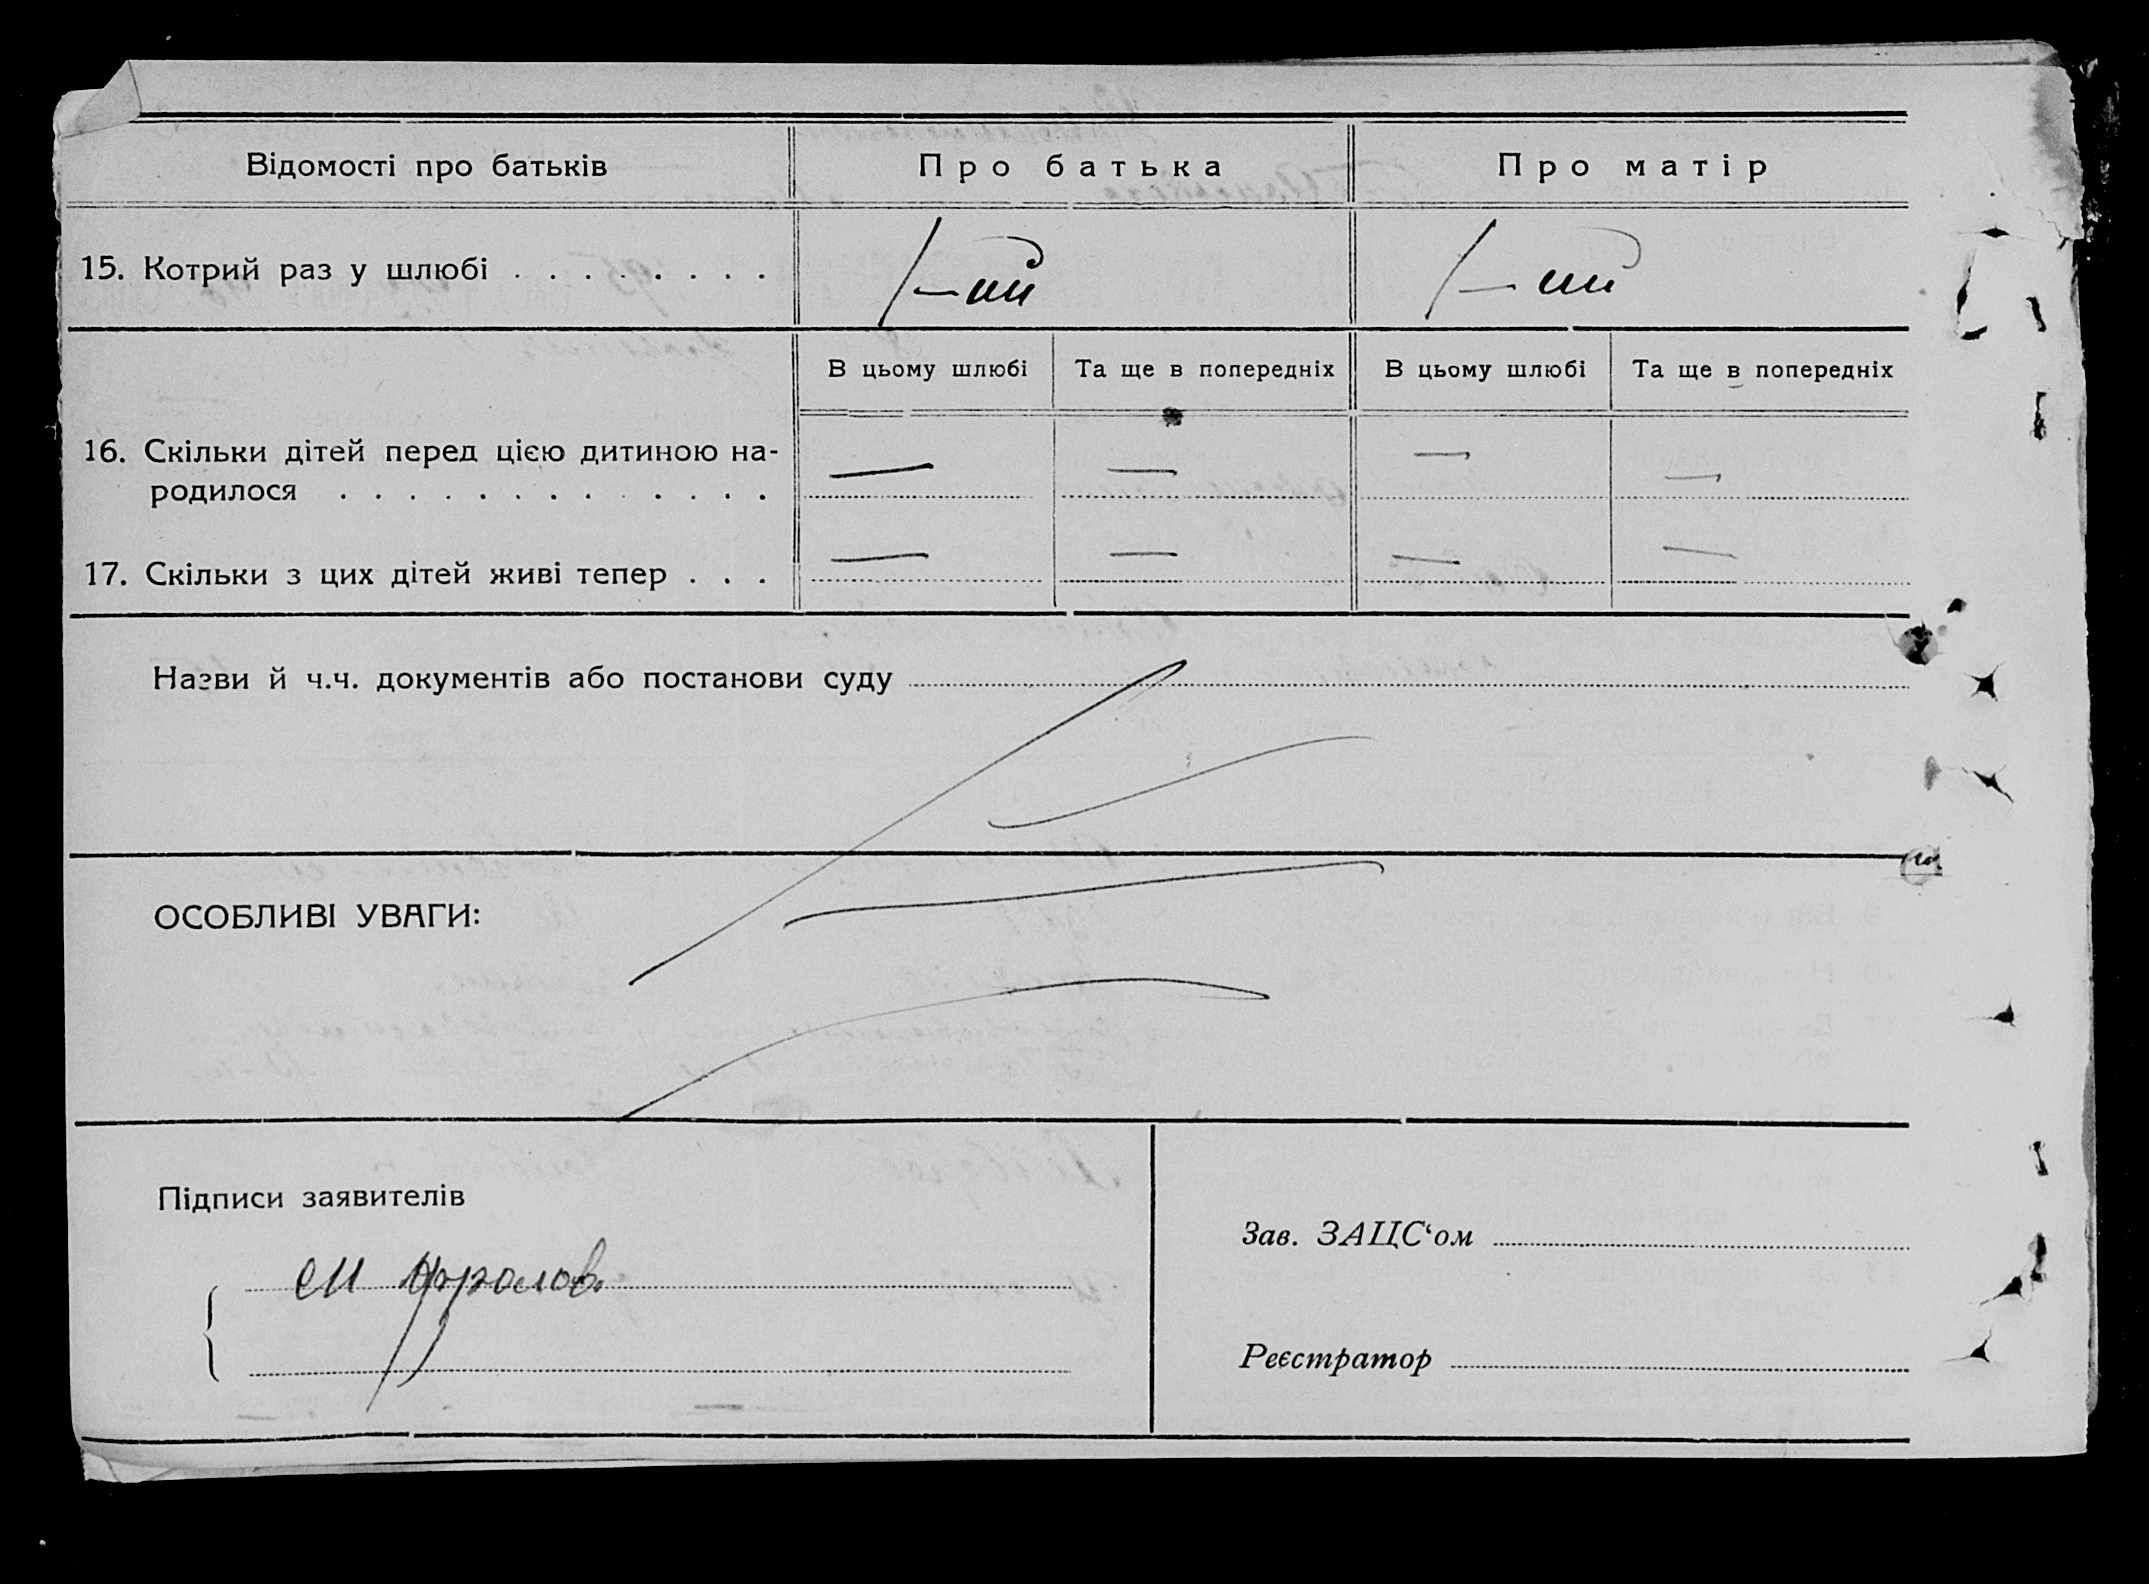 Відомості про батьків Про батька Про матір
15. Котрий раз у шлюбі . . . . . . . . I–ий I–ий
В цьому шлюбі Та ще в попередніх В цьому шлюбі Та ще в попередніх
16. Скільки дітей перед цією дитиною на-
родилося . . . . . . . . . . . . . — — — —
17. Скільки з цих дітей живі тепер . . . — — — —
Назви й ч.ч. документів або постанови суду
ОСОБЛИВІ УВАГИ:
Підписи заявителів
Зав. ЗАЦС‘ом
Фролов
Реєстратор